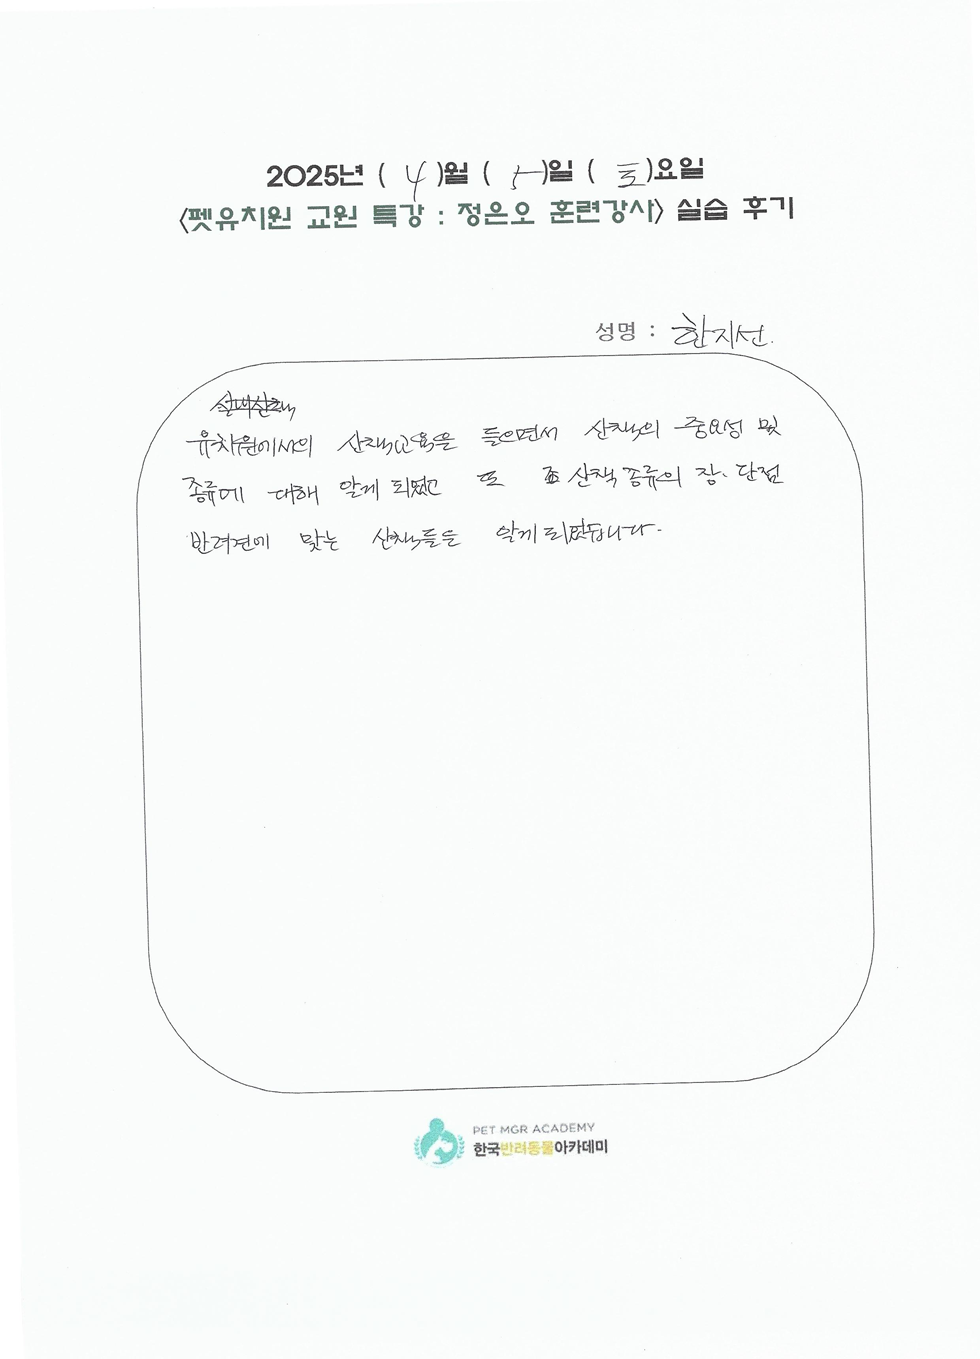 2025년 ( 4 )월 ( 5 )일 ( 토 )요일
<펫유치원 교원 특강 : 정은오 훈련강사> 실습 후기
성명 : 한지선.
실내산책
유치원에서의 산책교육을 들으면서 산책의 중요성 및
종류에 대해 알게 되었고 또 산책 종류의 장·단점
반려견에 맞는 산책들을 알게 되었습니다.
PET MGR ACADEMY
한국반려동물아카데미